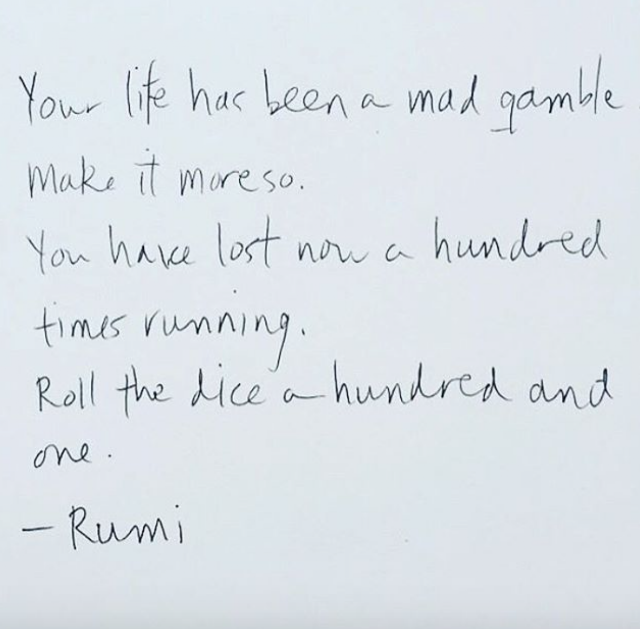 Your life has been a mad gamble
Make it more so.
You have lost now a hundred
times running.
Roll the dice a hundred and
one.
- Rumi